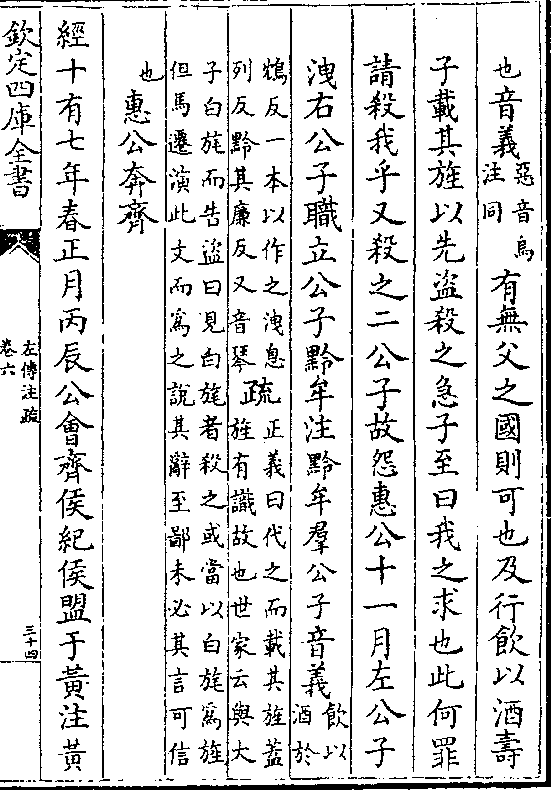 也音義惡音烏注同有無父之國則可也及行飲以酒壽
子載其旌以先盜殺之急子至曰我之求也此何罪
請殺我乎又殺之二公子故怨惠公十一月左公子
洩右公子職立公子黔牟注黔牟羣公子音義飲以酒於
鴆反一本以作之洩息列反黔其廉反又音琴疏正義曰代之而載其旌蓋旌有識故也世家云與大
子白旄而告盜曰見白旄者殺之或當以白旄爲旌
但馬遷演此文而爲之說其辭至鄙未必其言可信
也惠公奔齊
經十有七年春正月丙辰公會齊侯紀侯盟于黃注黃
欽定四庫全書
左傳注疏
卷六
三十四